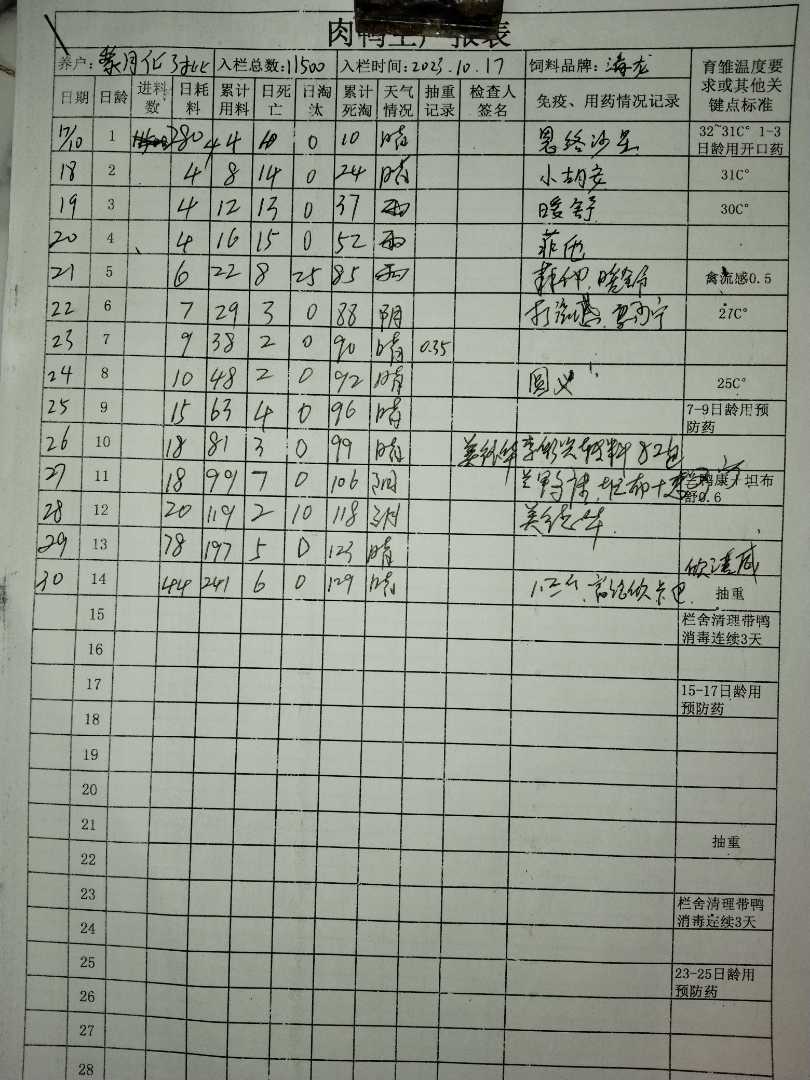 肉鸭生产报表
养户: 入栏总数:11500 入栏时间:2023.10.17 饲料品牌:海龙 育雏温度要求或其他关键点标准
日期 日龄 进料数 日耗料 累计用料 日死亡 日淘汰 累计死淘 天气情况 抽重记录 检查人签名 免疫、用药情况记录
17/10 1 280 4 4 10 0 10 晴 恩络沙星 32~31C° 1-3日龄用开口药
18 2 4 8 14 0 24 晴 31C°
19 3 4 12 13 0 37 雨 暖舒 30C°
20 4 4 16 15 0 52 雨
21 5 6 22 8 25 85 雨 禽流感0.5
22 6 7 29 3 0 88 阴 27C°
23 7 9 38 2 0 90 晴 0.35
24 8 10 48 2 0 92 晴 25C°
25 9 15 63 4 0 96 晴 7-9日龄用预防药
26 10 18 81 3 0 99 晴 82包
27 11 18 99 7 0 106 阴 鸭康+坦布舒0.6
28 12 20 119 2 10 118 阴
29 13 78 197 5 0 123 晴
30 14 44 241 6 0 129 晴 抽重
15 栏舍清理带鸭消毒连续3天
16
17 15-17日龄用预防药
18
19
20
21 抽重
22
23 栏舍清理带鸭消毒连续3天
24
25 23-25日龄用预防药
26
27
28